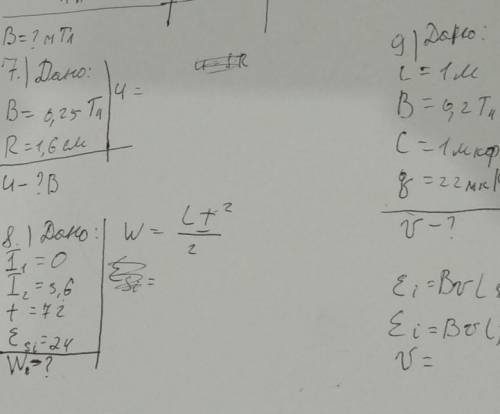 B = ? мТл
7.) Дано:
B = 0,25 Тл
R = 1,6 см
U - ? В
U =
8.) Дано:
I₁ = 0
I₂ = 5,6
t = 72
Ɛsi = 24
W - ?
W = LI²/2
9) Дано:
L = 1 м
B = 0,2 Тл
C = 1 мкФ
q = 22 мк
v - ?
Ɛi = BvL
Ɛi = BvL
v =